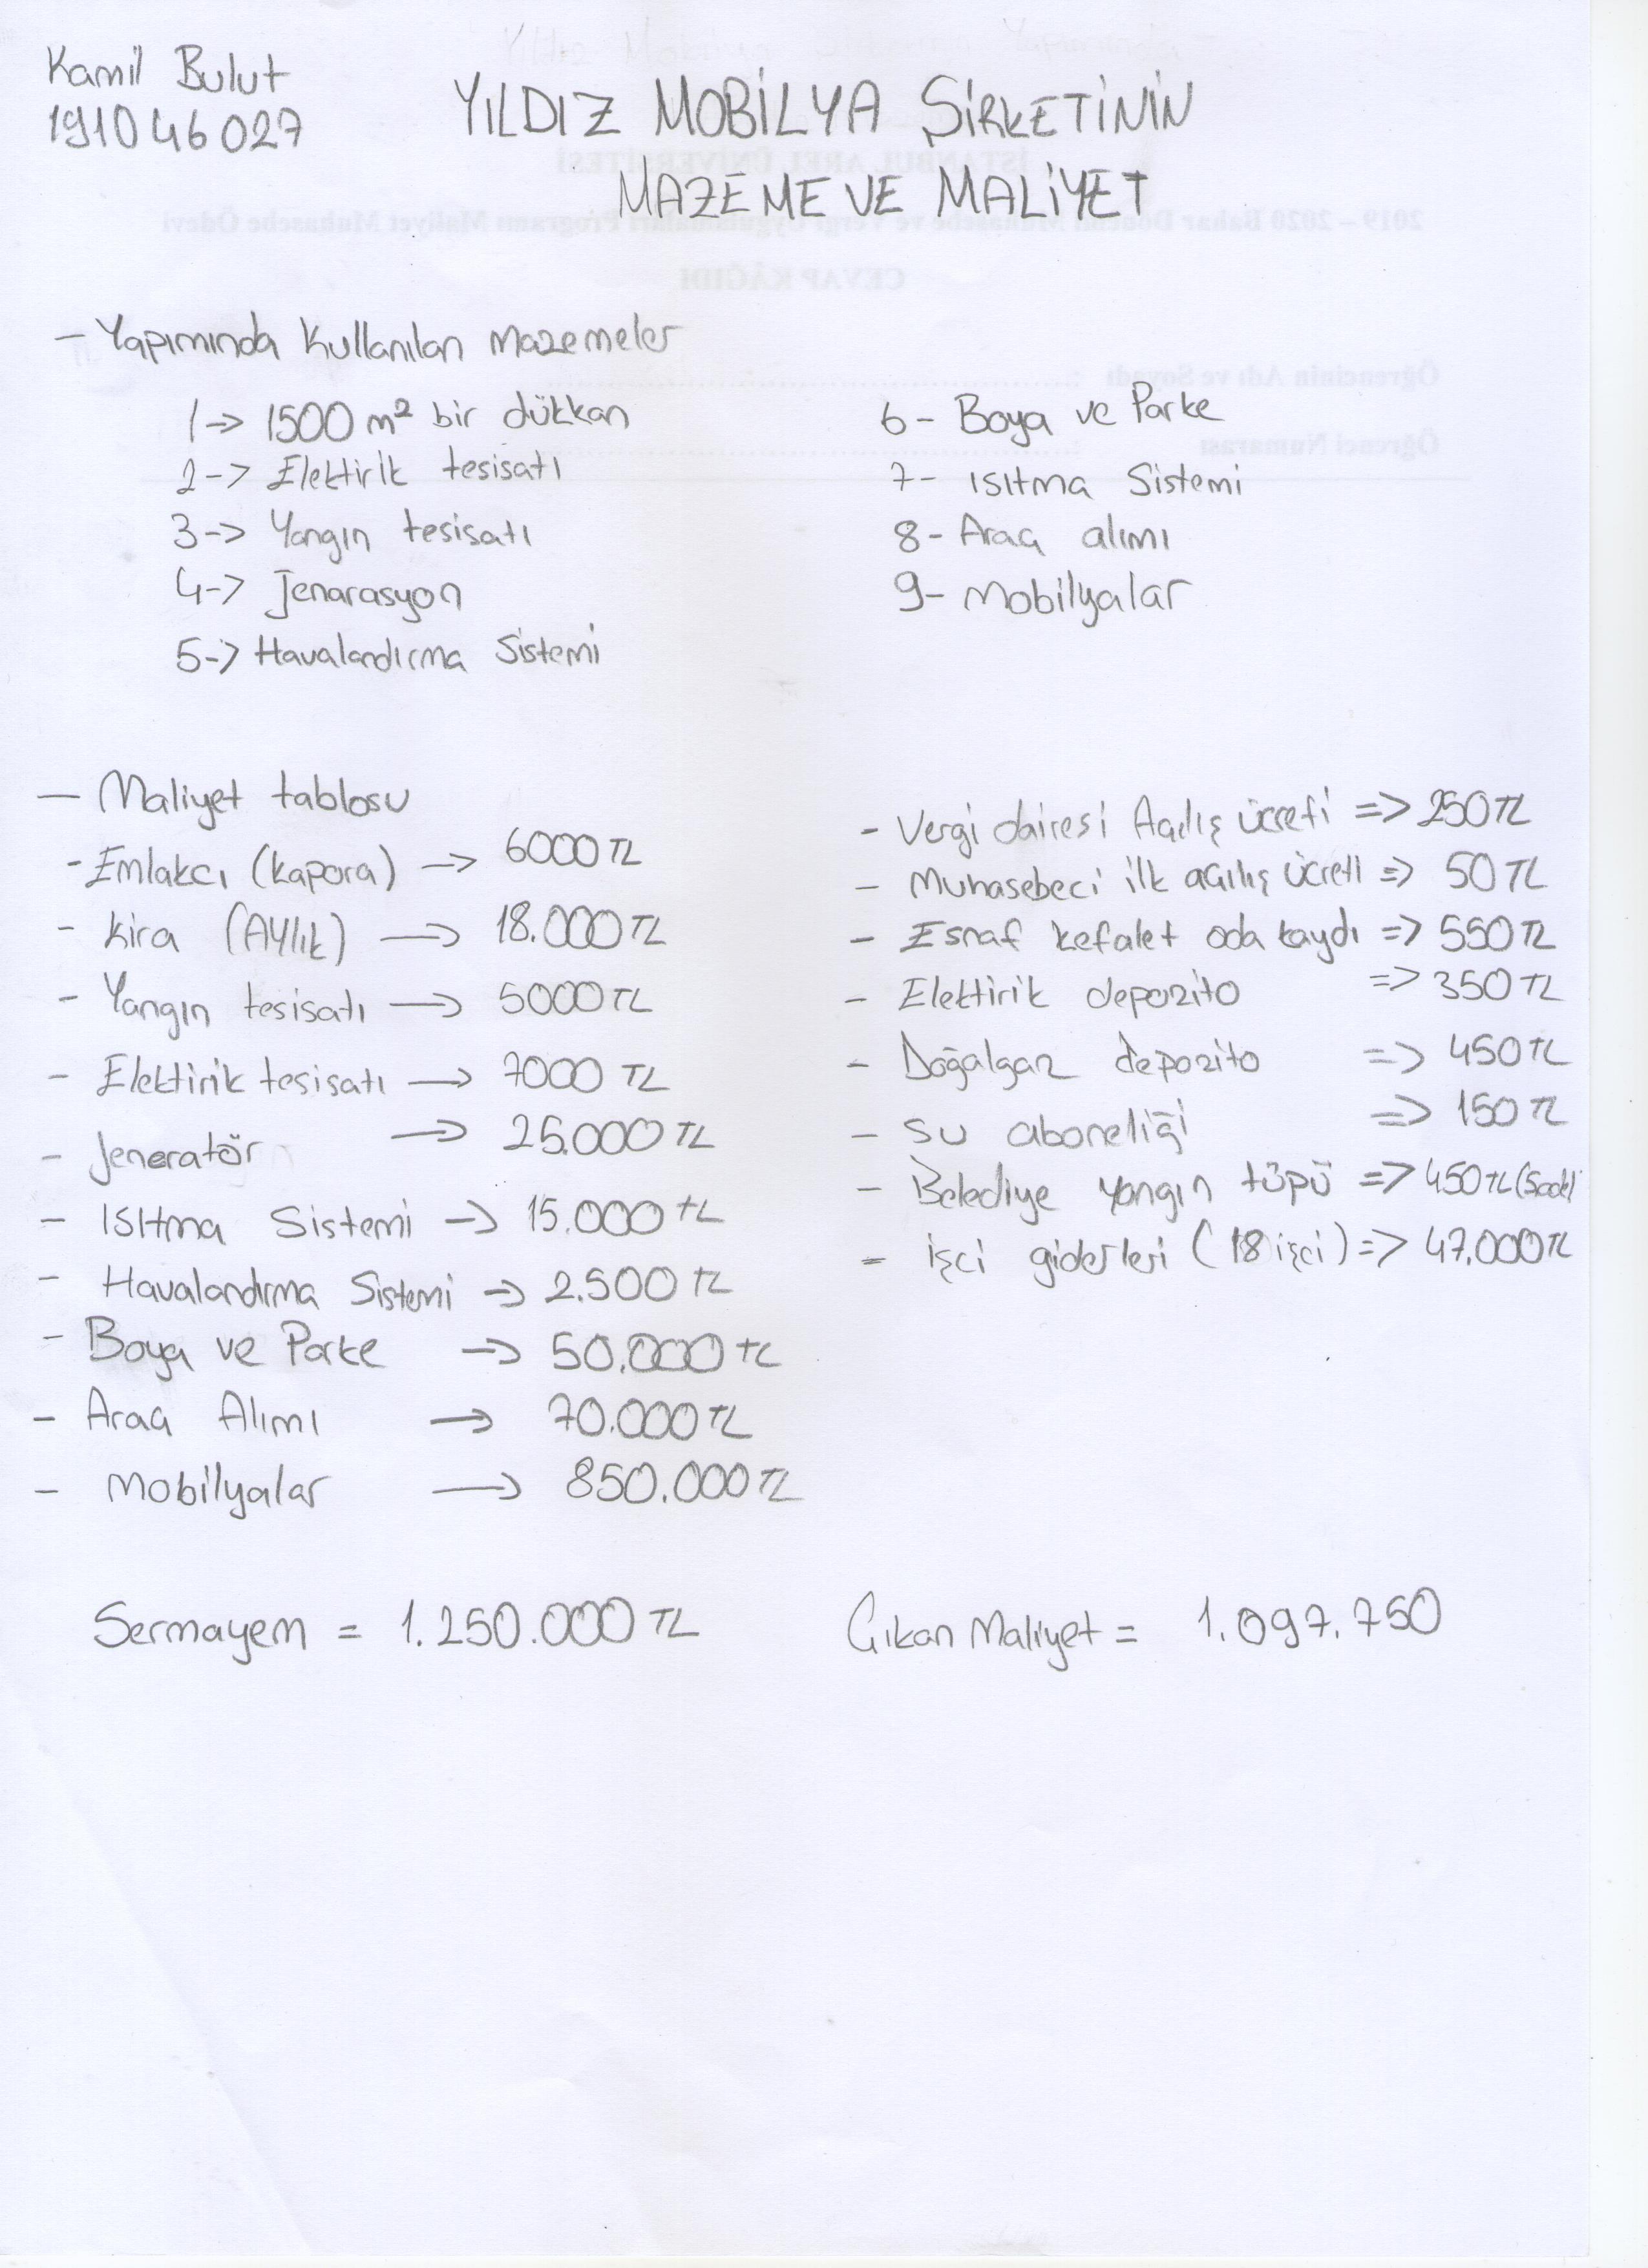 Kamil Bulut
191046027
YILDIZ MOBİLYA ŞİRKETİNİN
MAZEME VE MALİYET
- Yapımında Kullanılan Mazemeler
1-> 1500 m² bir dükkan
2-> Elektirik tesisatı
3-> Yangın tesisatı
4-> Jenarasyon
5-> Havalandırma Sistemi
6- Boya ve Parke
7- ısıtma Sistemi
8- Araç alımı
9- Mobilyalar
- Maliyet tablosu
- Emlakcı (kapora) -> 6000 TL
- kira (Aylık) -> 18.000 TL
- Yangın tesisatı -> 5000 TL
- Elektirik tesisatı -> 7000 TL
- Jeneratör -> 25.000 TL
- ısıtma Sistemi -> 15.000 TL
- Havalandırma Sistemi -> 2.500 TL
- Boya ve Parke -> 50.000 TL
- Araç Alımı -> 70.000 TL
- Mobilyalar -> 850.000 TL
- Vergi dairesi Açılış ücreti => 250 TL
- Muhasebeci ilk açılış ücreti => 50 TL
- Esnaf kefalet oda kaydı => 550 TL
- Elektirik depozito => 350 TL
- Doğalgaz depozito => 450 TL
- su aboneliği => 150 TL
- Belediye yangın tüpü => 450 TL (5 adet)
- işci giderleri (18 işci) => 47.000 TL
Sermayem = 1.250.000 TL
Çıkan Maliyet = 1.097.750
İSTANBUL AREL ÜNİVERSİTESİ
2019 – 2020 Bahar Dönemi Muhasebe ve Vergi Uygulamaları Programı Maliyet Muhasebe Ödevi
CEVAP KÂĞIDI
Öğrencinin Adı ve Soyadı :
Öğrenci Numarası :